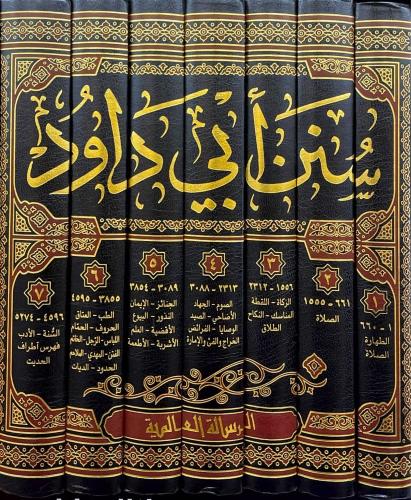 سُنَنَ أَبِي دَاوُد
١
١ - ٦٦٠
الطهارة
الصلاة
٢
٦٦١ - ١٥٥٥
الصلاة
٣
١٥٥٦ - ٢٣١٢
الزكاة - اللقطة
المناسك - النكاح
الطلاق
٤
٢٣١٣ - ٣٠٨٨
الصوم - الجهاد
الأضاحي - الصيد
الوصايا - الفرائض
الخراج والفيء والإمارة
٥
٣٠٨٩ - ٣٨٥٤
الجنائز - الإيمان
النذور - البيوع
الأقضية - العلم
الأشربة - الأطعمة
٦
٣٨٥٥ - ٤٥٩٥
الطب - العتاق
الحروف - الحمّام
اللباس - الترجل - الخاتم
الفتن - المهدي - الملاحم
الحدود - الديات
٧
٤٥٩٦ - ٥٢٧٤
السُّنة - الأدب
فهرس أطراف
الحديث
الرسالة العالمية